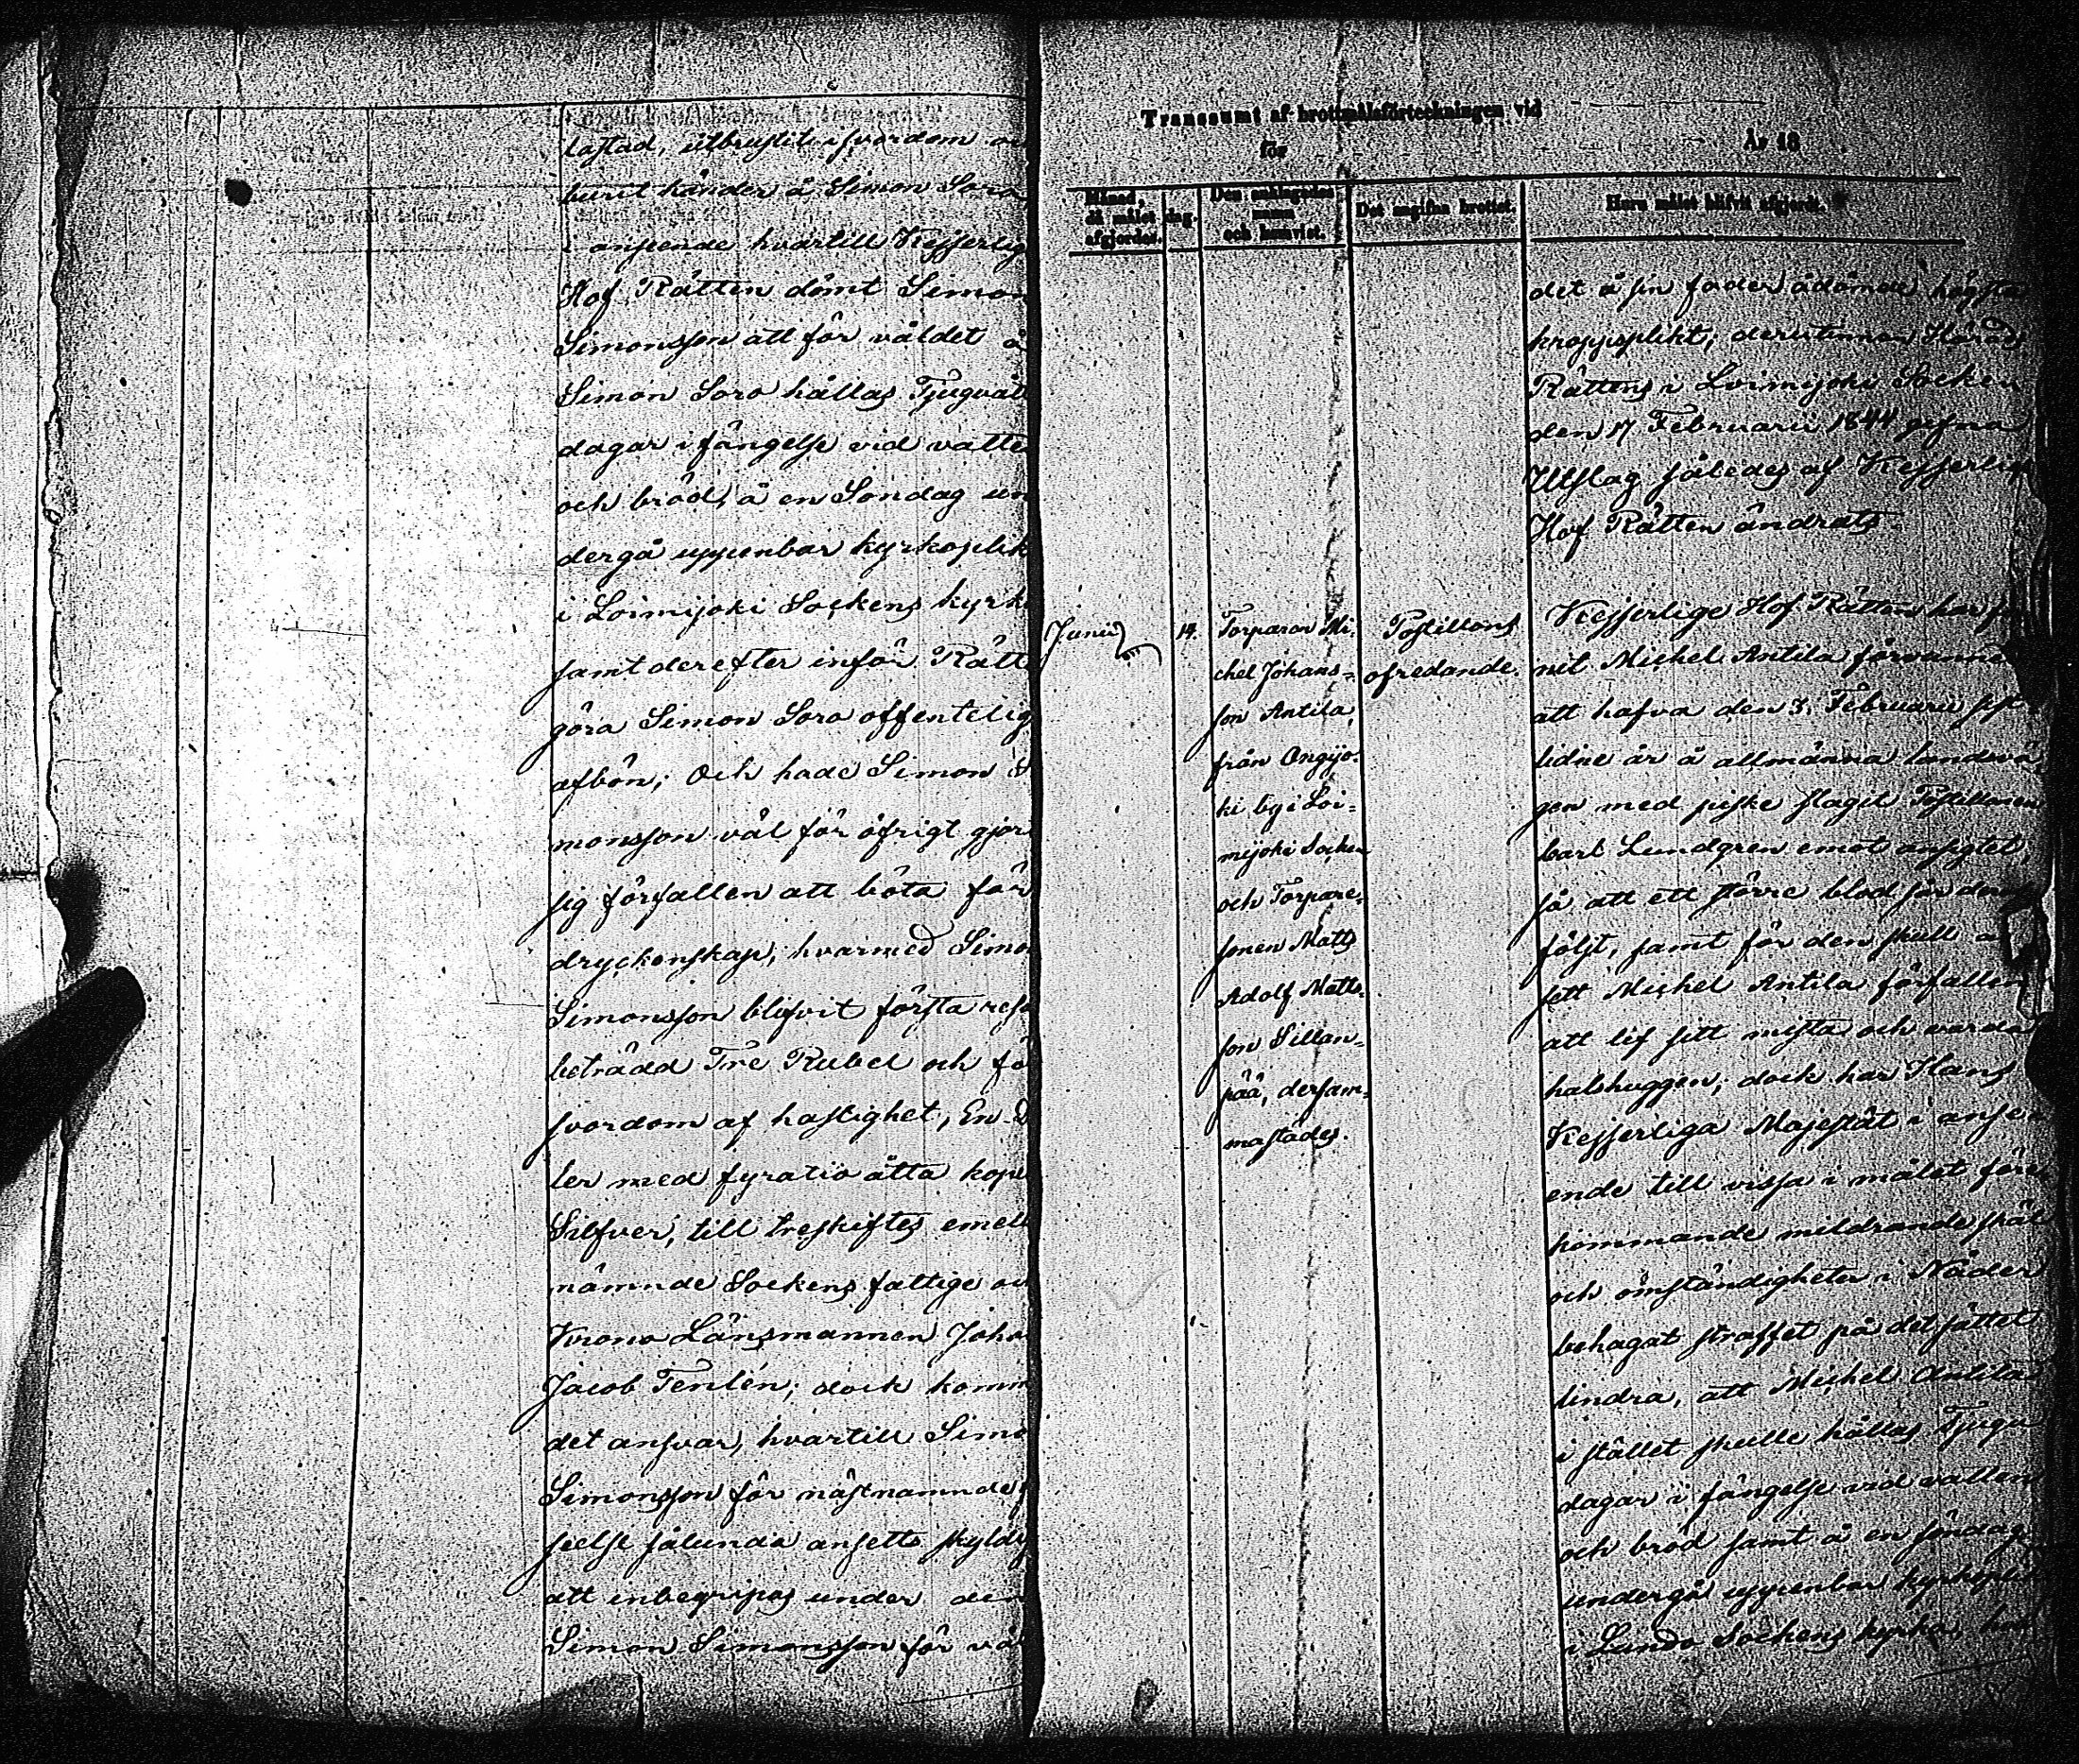 lastad, utbrustit i svordom
burit händer å Simon Soro
i anseende hvartill Kejserlig
Hof Rätten dömt Simon
Simonsson att för våldet å
Simon Soro hållas Tjuguåt
dagar i fängelse vid vatte
och bröd, å en Söndag un
dergå uppenbar kyrkoplik
i Loimijoki Sockens kyrk
samt derefter inför Rätt
göra Simon Soro offentelig
afbön; Och hade Simon
monsson väl för öfrigt gjor
sig förfallen att böta för
dryckenskap, hvarmed Simo
Simonsson blifvit första res
beträdd Tre Rubel och fö
svordom af hastighet, En
ler med fyratio åtta kope
Silfver, till treskiftes emell
nämnde Sockens fattige
Krono Länsmannen Joha
Jacob Tenlén; dock komm
det ansvar, hvartill Simo
Simonsson för nästnämnde
seelse sålunda ansetts skyldi
att inbegripas under den
Simon Simonsson för vål
Transsumt af brottmålsförteckningen vid
för År 18
Månad, då målet afgjordes. dag. Den anklagades namn och hemvist. Det angifna brottet. Huru målet blifvit afgjordt.
det å sin fader ådömde högsta
kroppsplikt, derutinnan Härads
Rättens i Loimijoki Socken
den 17 Februarii 1844 gifna
Utslag således af Kejserlige
Hof Rätten ändrats.
Junii 14.
Torparen Mi-
chel Johans-
son Antila,
från Ongijo-
ki by i Loi-
mijoki Socken
och Torpare-
sonen Matts
Adolf Matts-
son Sillan-
pää, dersam-
mastädes.
Postillons
ofredande.
Kejserlige Hof Rätten har fun
nit Michel Antila förvunnen
att hafva den 3. Februarii sist
lidne år å allmänna landsvä
gen med piske slagit Postillonen
Carl Lundgren emot ansigtet,
så att ett större blod sår deraf
följt, samt för den skull
sett Michel Antila förfallen
att lif sitt mista och varda
halshuggen; dock har Hans
Kejserliga Majestät i anse
ende till vissa i målet före
kommande mildrande skäl
och omständigheter i Nåder
behagat straffet på det sättet
lindra, att Michel Antila
i stället skulle hållas Tjugu
dagar i fängelse vid vatten
och bröd samt å en söndag
undergå uppenbar kyrkoplik
i Lundo Sockens kyrka,